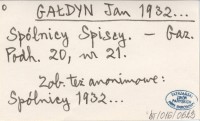 GAŁDYN Jan 1932...
Spólnicy Spiscy. – Gaz.
Podh. 20, nr 21.
Zob. też anonimowe:
Spólnicy 1932...